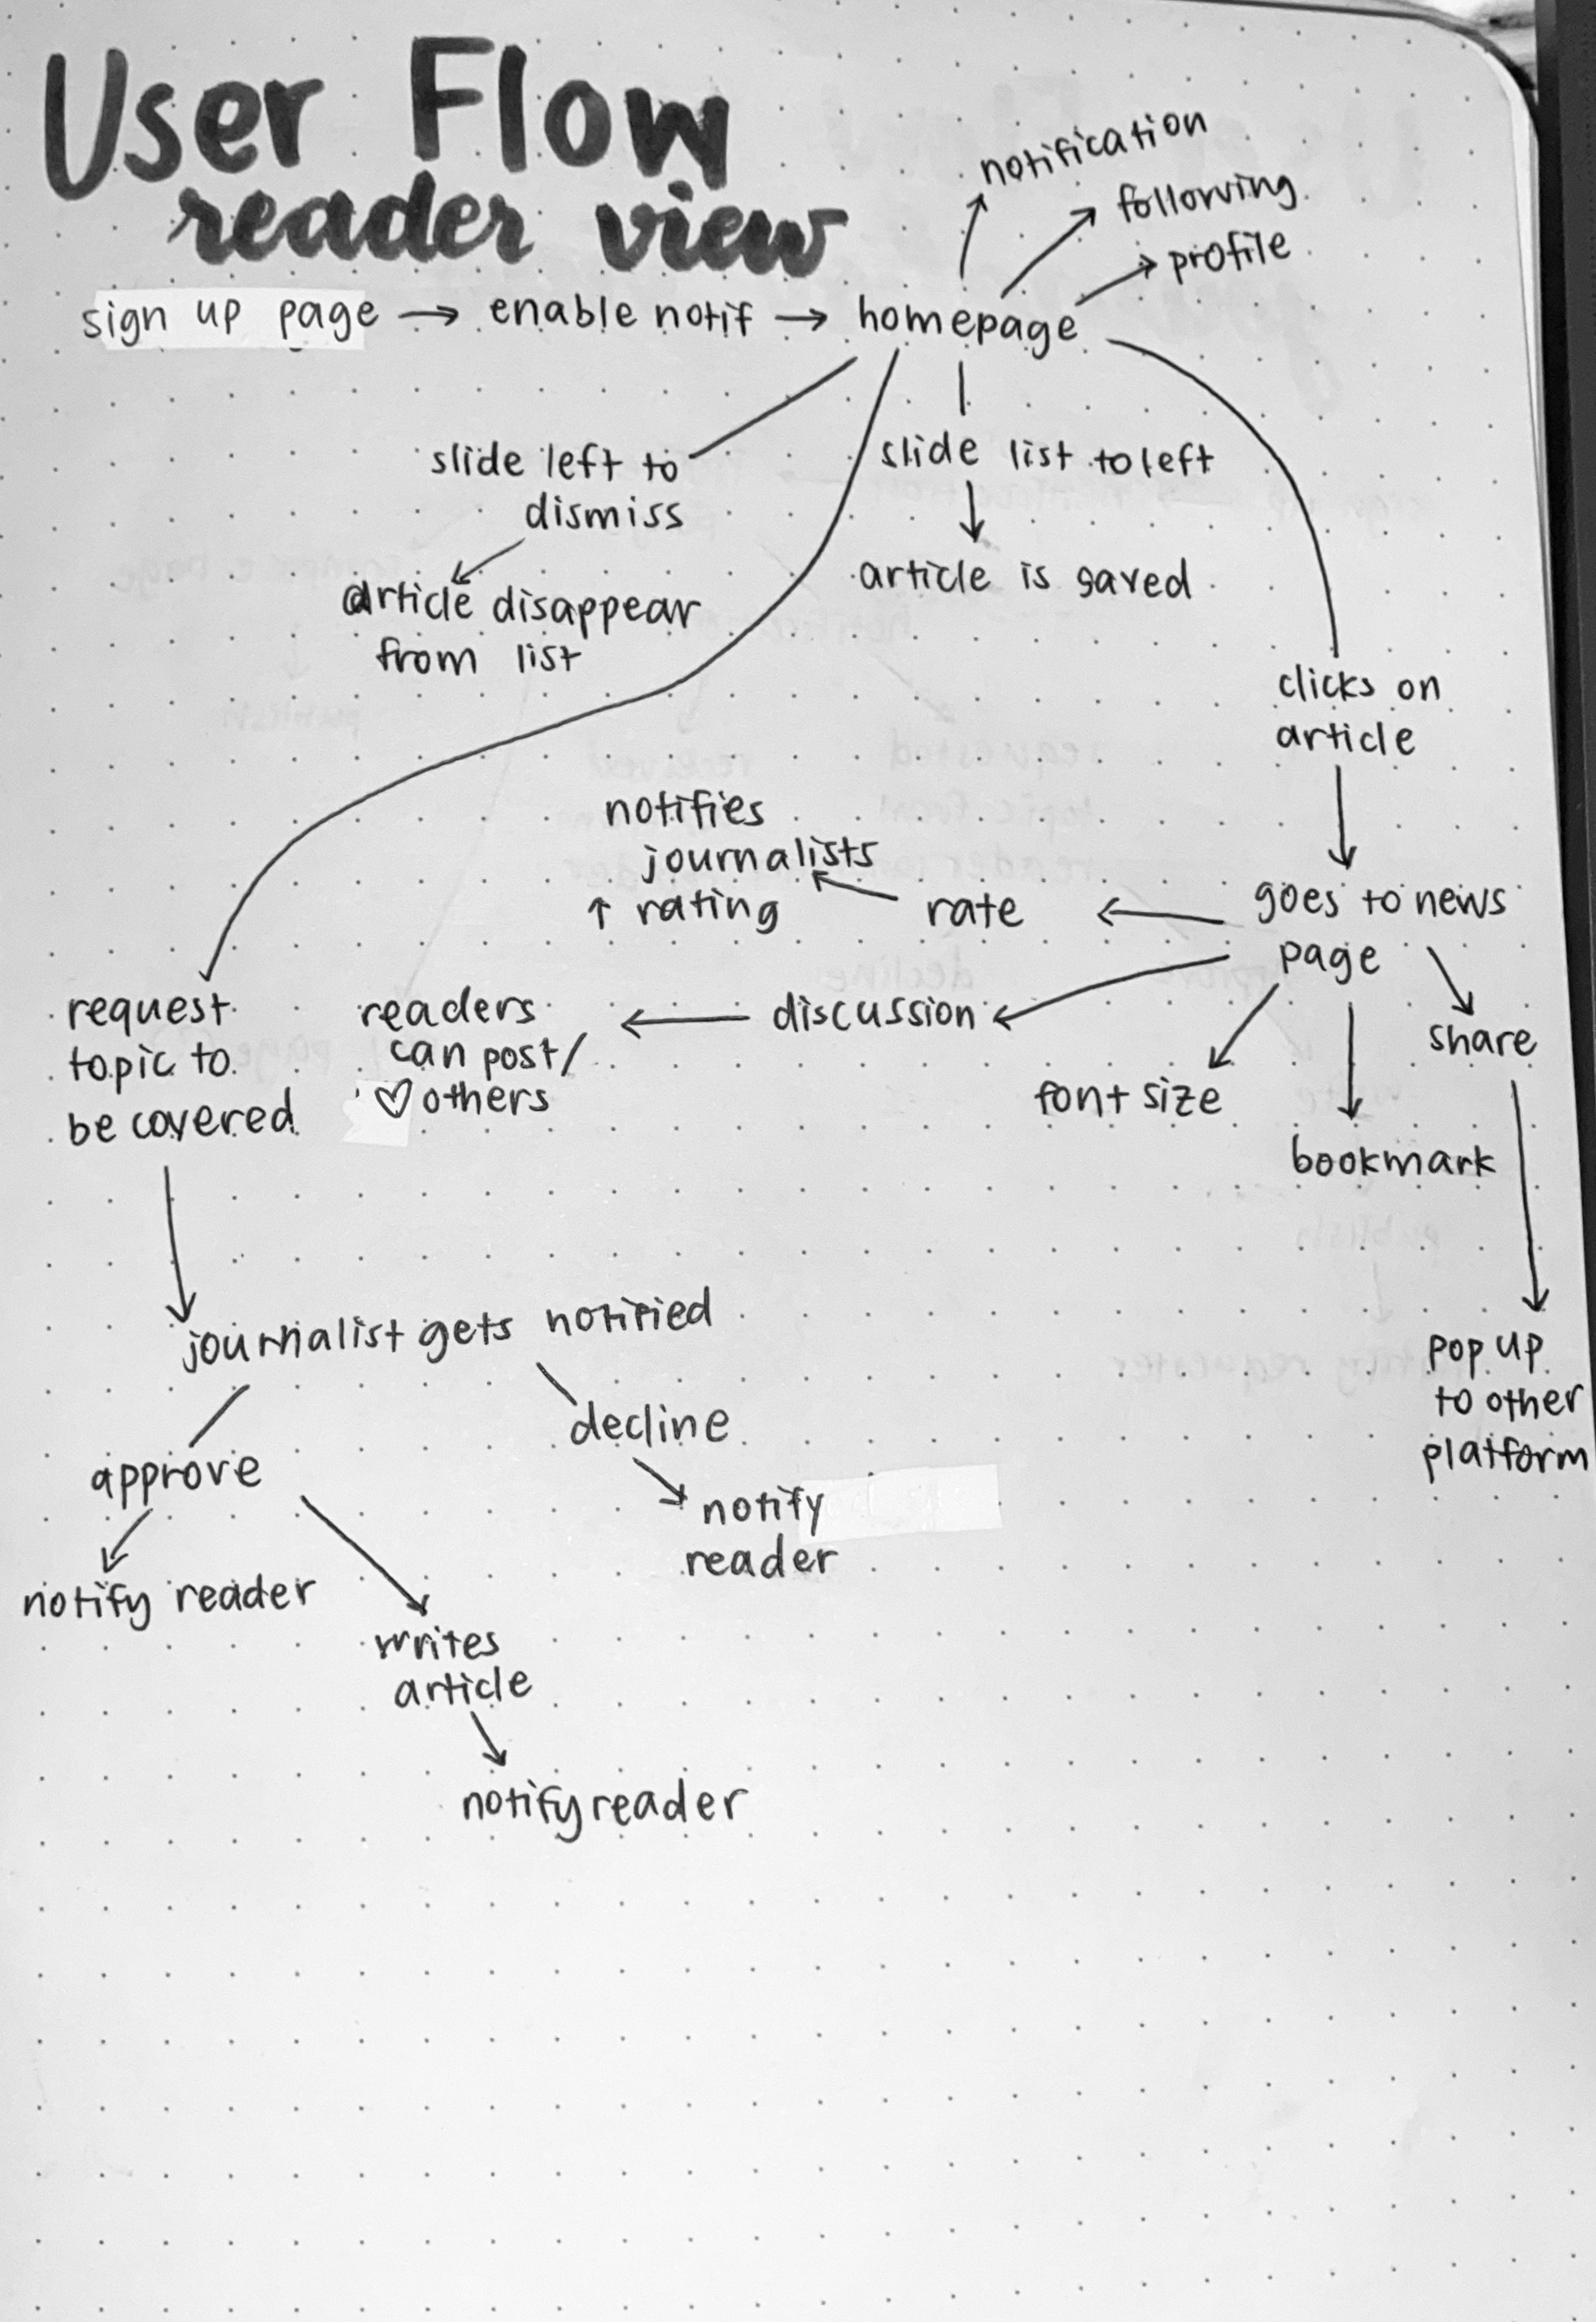 User Flow
reader view
notification
following
profile
sign up page → enable notif → homepage
slide left to
dismiss
slide list to left
article disappear
from list
article is saved
clicks on
article
notifies
journalists
↑ rating
rate
goes to news
page
request
topic to
be covered
readers
can post/
♡ others
discussion
share
font size
bookmark
journalist gets notified
pop up
to other
platform
decline
approve
notify
reader
notify reader
writes
article
notify reader